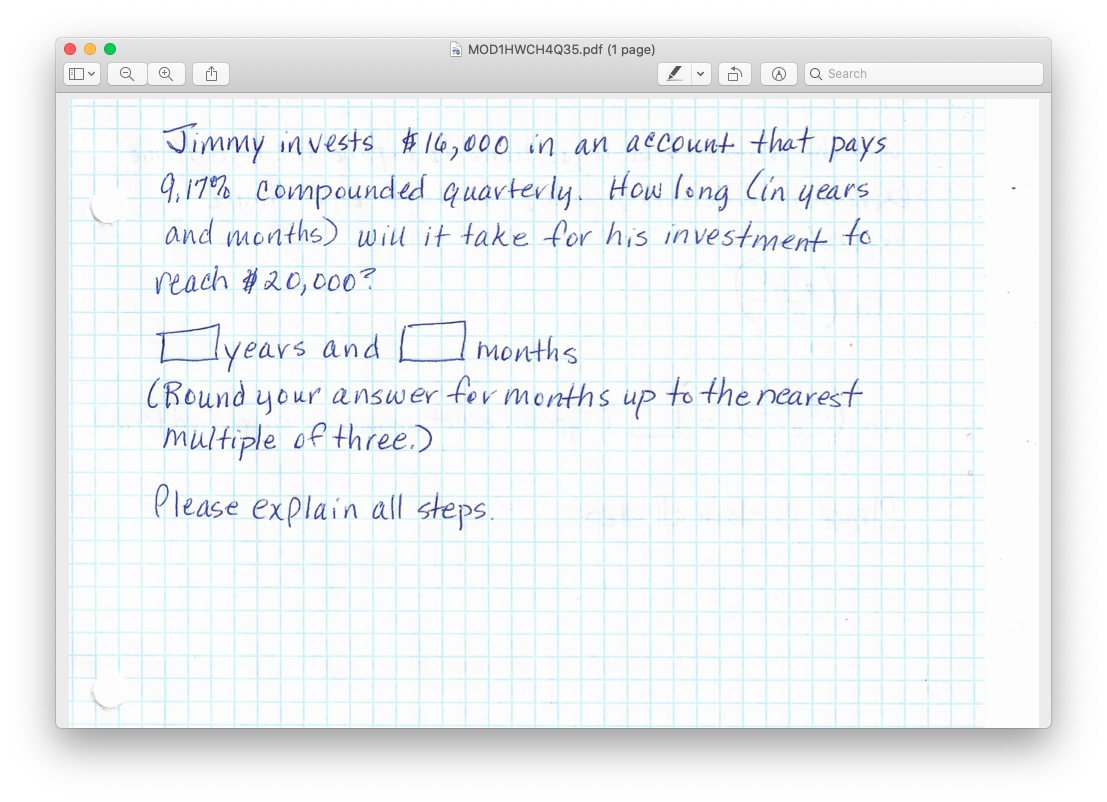 MOD1HWCH4Q35.pdf (1 page)
Search
Jimmy invests $16,000 in an account that pays
9.17% compounded quarterly. How long (in years
and months) will it take for his investment to
reach $20,000?
years and months
(Round your answer for months up to the nearest
multiple of three.)
Please explain all steps.